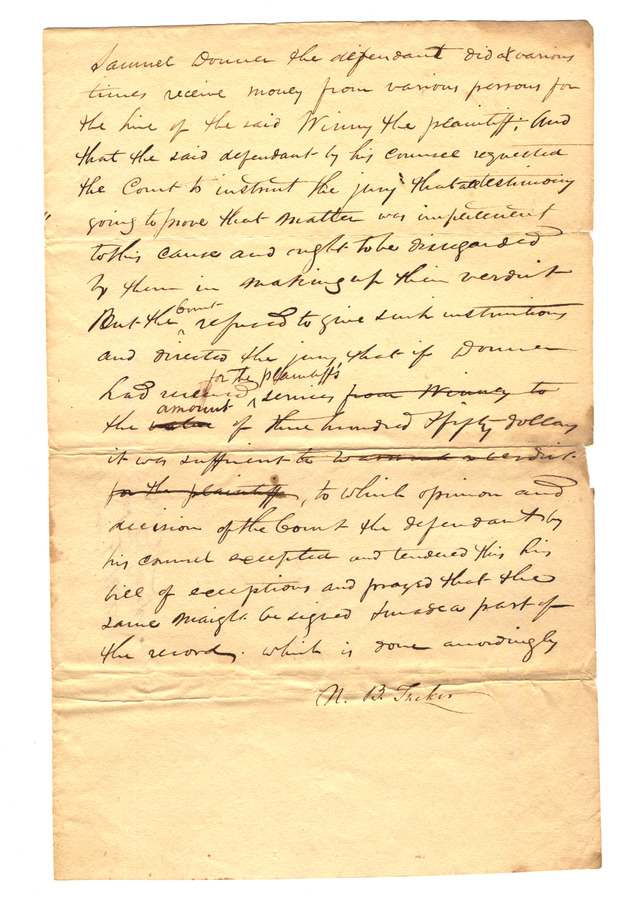 Samuel Donner the defendant did at various
times receive money from various persons for
the hire of the said Winny the plaintiff; And
that the said defendant by his counsel requested
the Court to instruct the jury that testimony
going to prove that matter was impertinent
to this cause and ought to be disregarded
by them in making up their verdict
But the Court refused to give such instructions
and directed the jury, that if Donner
had received for the plaintiff's services from Winney to
the value amount of three hundred & fifty dollars
it was sufficient to warrant a verdict
for the plaintiff, to which opinion and
decision of the Court the defendant by
his counsel excepted and tendered this his
bill of exceptions and prayed that the
same might be signed & made a part of
the record. which is done accordingly
N. B. Tucker